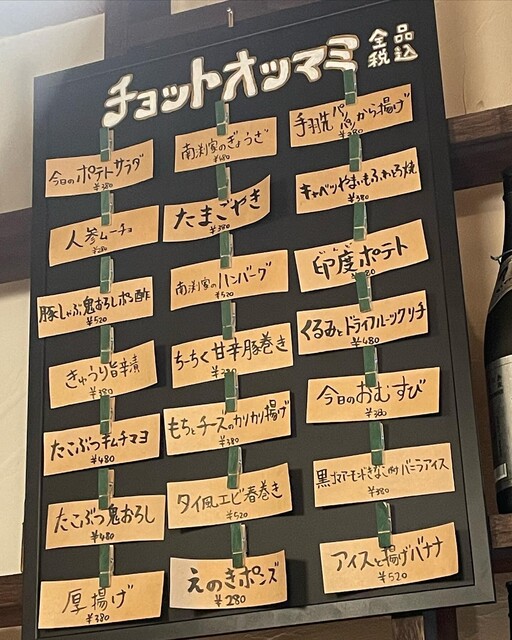 チョットオツマミ
全品
税込
今日のポテトサラダ
¥380
人参ムーチョ
豚しゃぶ鬼おろしポン酢
¥520
きゅうり旨辛漬
¥380
たこぶつキムチマヨ
¥480
たこぶつ鬼おろし
¥480
厚揚げ
¥380
南渕家のぎょうざ
¥480
たまごやき
¥380
南渕家のハンバーグ
¥520
ちーちく甘辛豚巻き
もちとチーズのカリカリ揚げ
¥380
タイ風エビ春巻き
¥520
えのきポンズ
¥280
手羽先パリパリから揚げ
¥380
キャベツやまいもふわとろ焼
¥580
印度ポテト
くるみとドライフルーツクリチ
¥480
今日のおむすび
黒ゴマアーモンドきなこ餅バニラアイス
¥380
アイスと揚げバナナ
¥520